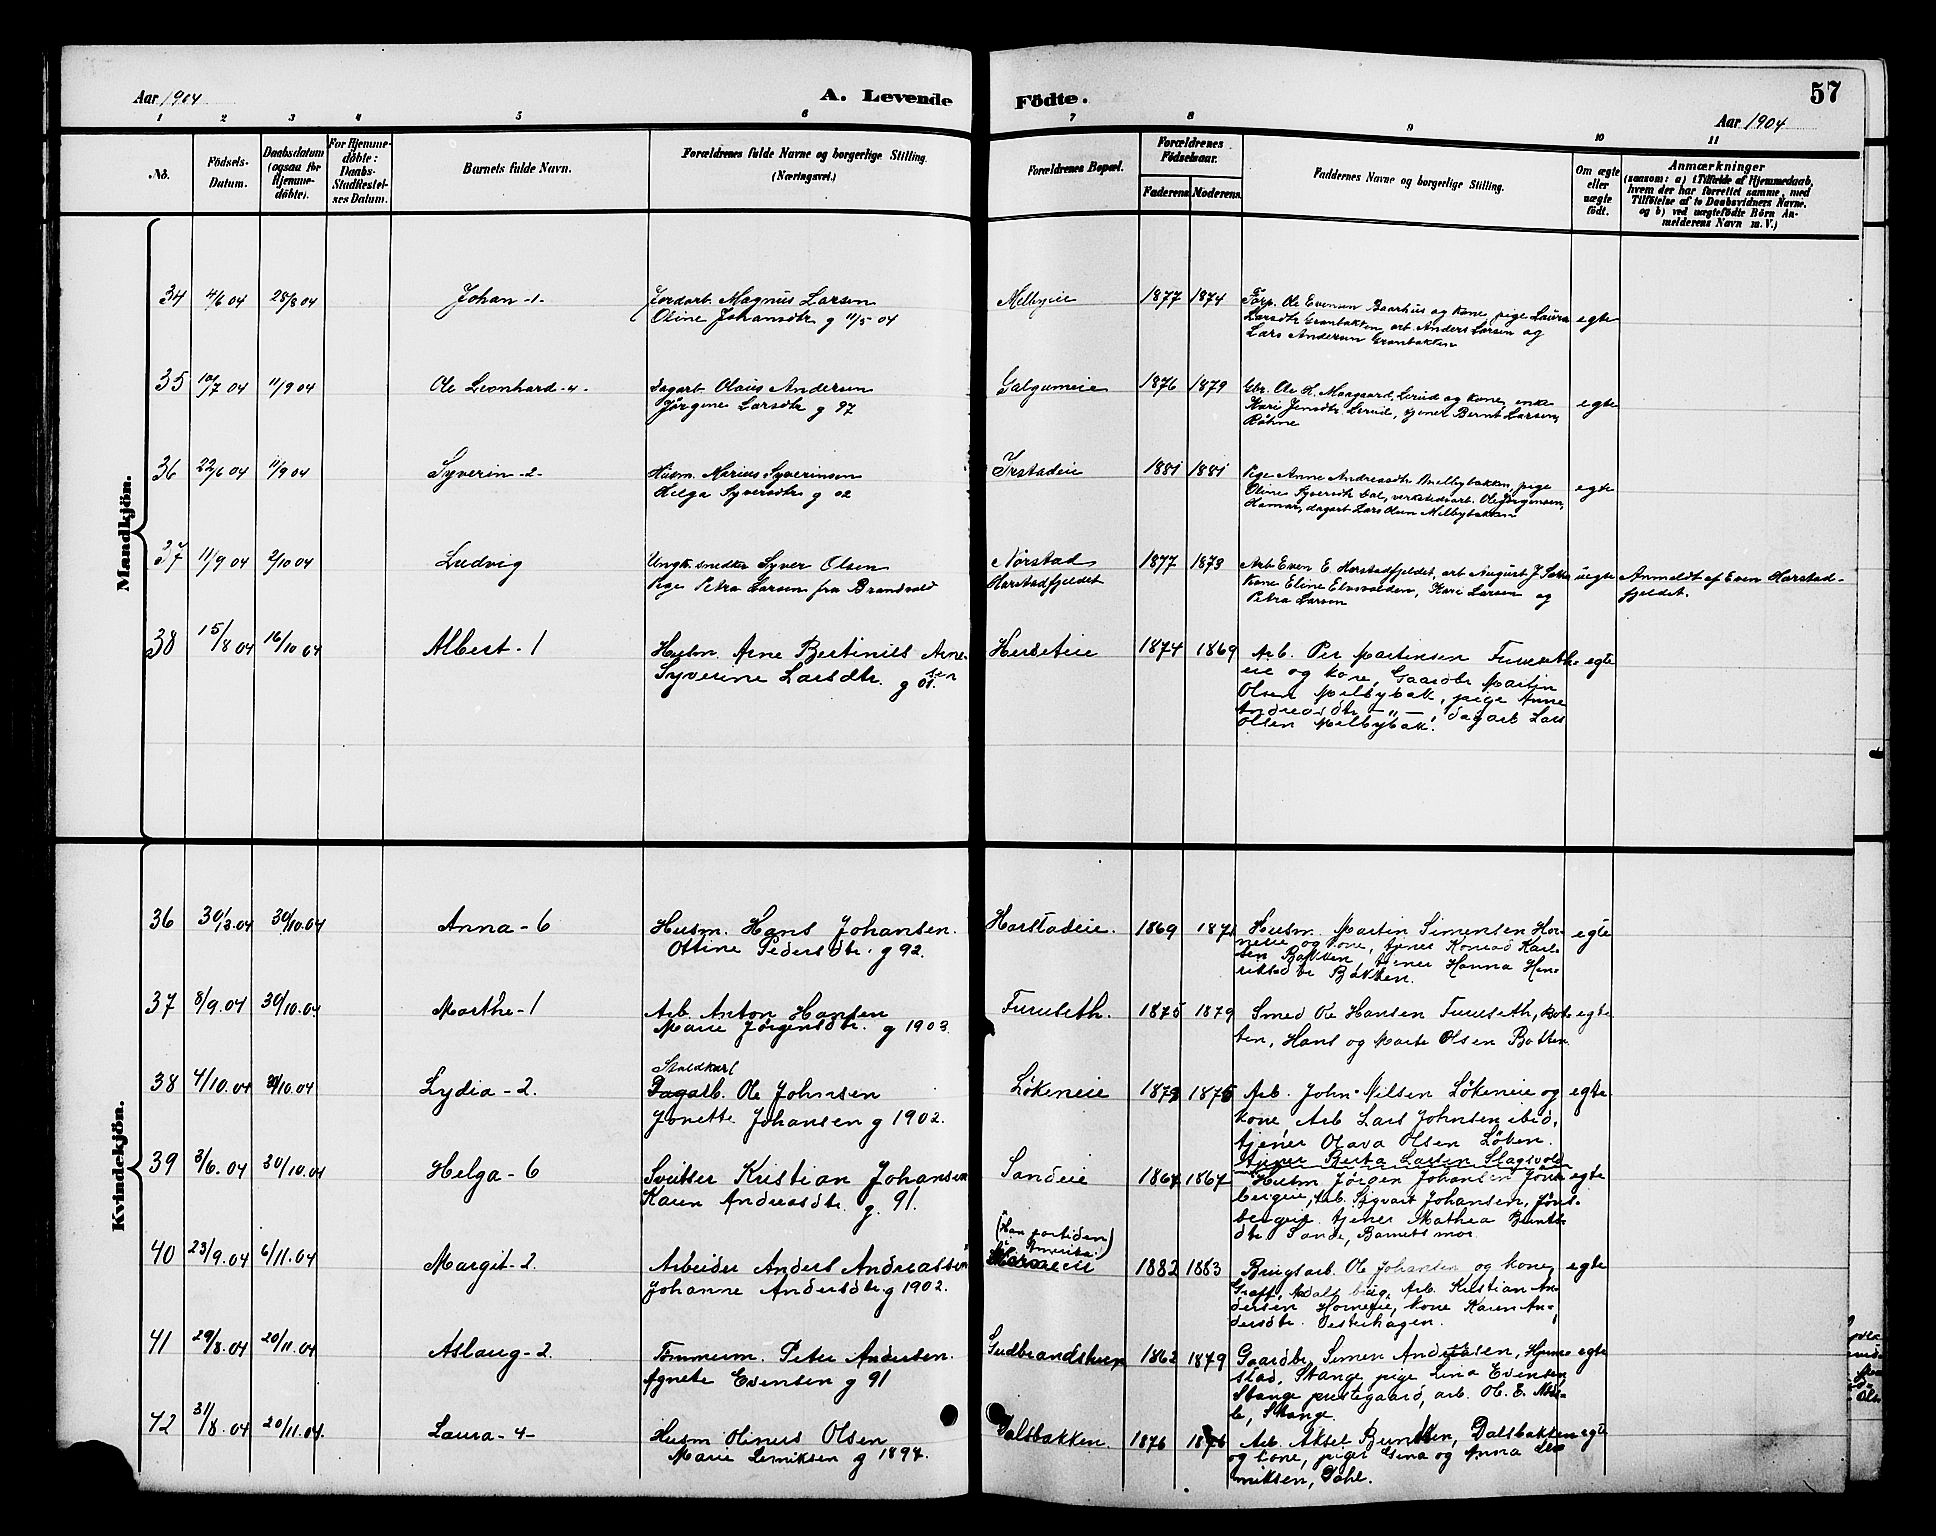 Aar 1904
A. Levende
Födte.
57
Aar 1904
1 2 3 4 5 6 7 8 9 10 11
No.
Födsels-
Datum.
Daabsdatum
(ogsaa for
Hjemme-
döbte).
For Hjemme-
döbte:
Daabs-
Stadfæstel-
ses Datum.
Barnets fulde Navn.
Forældrenes fulde Navne og borgerlige Stilling.
(Næringsvei.)
Forældrenes Bopæl.
Forældrenes
Födselsaar.
Faderens
Moderens.
Faddernes Navne og borgerlige Stilling.
Om ægte
eller
uægte
födt.
Anmærkninger
(saasom: a) i Tilfælde af Hjemmedaab,
hvem der har forrettet samme, med
Tilföielse af to Daabsvidners Navne.
og b) ved uægtefödte Börn An-
melderens Navn m. V.)
Mandkjön.
34 4/6 04 28/8 04 Johan -1-
Jordarb. Magnus Larsen
Oline Johansdtr g 11/5 04
Melbyeie 1877 1874
Torp. Ole Evensen Baarhus og kone, pige Laura
Larsdtr Granbakken, arb. Anders Larsen og
Lars Andersen Granbakken
egte
35 10/7 04 11/9 04 Ole Leonhard -4-
Dagarb. Olaus Andersen
Jørgine Larsdtr g 97
Galgumeie 1876 1879
Gbr. Ole H. Maagaard, Lerud og kone, enke
Kari Jensdtr Lerud, tjener Bernt Larsen,
Røhne
egte
36 22/6 04 11/9 04 Syverin -2-
Husm. Marius Syverinsen
Helga Syversdtr g 02
Irstadeie 1881 1881
Pige Anne Andreasdtr Melbybakken, pige
Oline Syversdtr Dal, verkstedsarb. Ole Jørgensen,
Hamar, dagarb Lars Olsen Melbybakken
egte
37 11/9 04 2/10 04 Ludvig
Ungk. smedker Syver Olsen
Pige Petra Larsen fra Brandvold
Nørstad
Harstadfjeldet
1877 1873
Arb Even E. Harstadfjeldet, arb August J.
kone Eline Elvesveen, Kari Larsen og
Petra Larsen
uegte
Anmeldt af Even Harstad-
fjeldet.
38 15/8 04 16/10 04 Albert - 1
Husm. Arne Bertinius Arne-
sen
Syverine Larsdtr. g 01.
Hersteie 1874 1869
Arb. Per Martinsen Furuseth-
eie og kone, Gaardbr Martin
Olsen Melbybak, pige Anne
Andreasdtr — " —, dagarb Lars
Olsen Melbybak.
egte
Kvindekjön.
36 30/3.04 30/10.04 Anna - 6
Husm. Hans Johansen.
Ottine Pedersdtr. g 92.
Harstadeie. 1869 1871
Husm. Martin Simensen Hor-
neeie og kone, tjener Konrad Karl-
sen Bakken, tjener Hanna Hen-
riksdtr Bakken.
egte
37 8/9.04 30/10.04 Marthe - 1
Arb. Anton Hansen
Marie Jørgensdtr. g 1903.
Furuseth. 1875 1879
Smed Ole Hansen Furuseth, Bot-
ten, Hans og Marte Olsen Botten.
egte
38 4/10.04 30/10.04 Lydia - 2.
Staldkarl
Dagarb. Ole Johnsen
Jonette Johansen g 1902.
Løkeneie 1879 1875
Arb. John Nilsen Løkeneie og
kone, Arb Lars Johnsen ibid,
tjener Olava Olsen Løken.
tjener Berta Larsen Slagsvold
egte
39 3/6.04 30/10.04 Helga - 6
Sveitser Kristian Johansen
Karen Andreasdtr. g. 91.
Sandeie 1864 1867
Husm Jørgen Johansen Jøns-
bergeie, Arb. Sigvart Johansen, Jøns-
bergeie. tjener Mathea Bernts-
dtr Sande, Barnets mor.
egte
40 23/9.04 6/11.04 Margit - 2.
Arbeider Anders Andreassen
Johanne Andersdtr. g 1902.
(Han fortiden
i Amerika.)
Horneeie 1882 1883
Brugsarb. Ole Johansen og kone,
Graff, Aadals brug, Arb. Kristian An-
dersen Horneeie, kone Karen An-
dersdtr. Vesterhagen.
egte
41 29/8.04 20/11.04 Aslaug - 2.
Tømmerm. Peter Andersen.
Agnete Evensen g 91
Gudbrandstuen 1862 1879
Gaardbr. Simen Andersen, Hjemm-
stad, Stange, pige Lina Evensen,
Stange prestegaard, arb. Ol. E.
Stange.
egte
42 31/8.04 20/11.04. Laura - 4 -
Husm Olinus Olsen
Marie Lemiksen g 1897.
Dalsbakken. 1876 1876
Arb. Aksel Berntsen, Dalsbakken
og kone, piger Gina og Anna Le-
miksen, Dahl.
egte